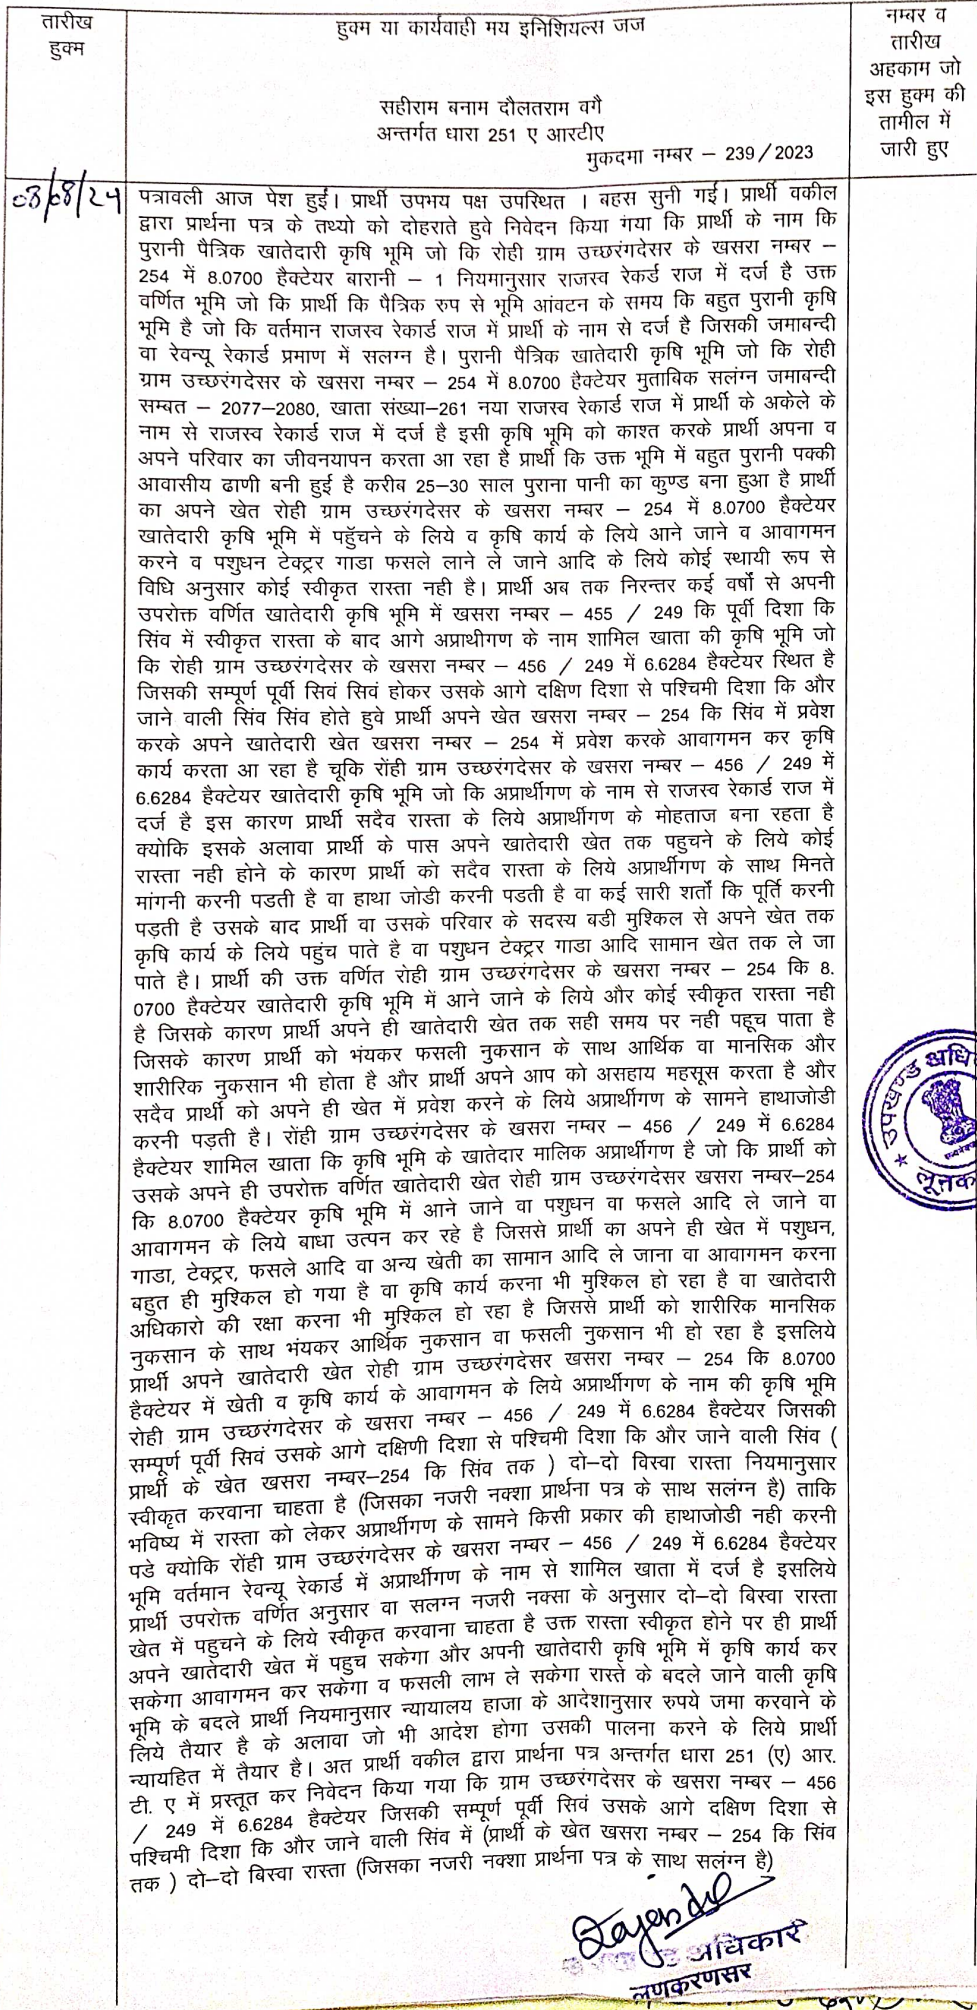 तारीख
हुक्म
हुक्म या कार्यवाही मय इनिशियल्स जज
नम्बर व
तारीख
अहकाम जो
इस हुक्म की
तामील में
जारी हुए
सहीराम बनाम दौलतराम वगै
अन्तर्गत धारा 251 ए आरटीए
मुकदमा नम्बर – 239/2023
03/08/24
पत्रावली आज पेश हुई। प्रार्थी उपभय पक्ष उपस्थित । बहस सुनी गई। प्रार्थी वकील
द्वारा प्रार्थना पत्र के तथ्यो को दोहराते हुवे निवेदन किया गया कि प्रार्थी के नाम कि
पुरानी पैत्रिक खातेदारी कृषि भूमि जो कि रोही ग्राम उच्छरंगदेसर के खसरा नम्बर –
254 में 8.0700 हैक्टेयर बारानी – 1 नियमानुसार राजस्व रेकर्ड राज में दर्ज है उक्त
वर्णित भूमि जो कि प्रार्थी कि पैत्रिक रुप से भूमि आंवटन के समय कि बहुत पुरानी कृषि
भूमि है जो कि वर्तमान राजस्व रेकार्ड राज में प्रार्थी के नाम से दर्ज है जिसकी जमाबन्दी
वा रेवन्यू रेकार्ड प्रमाण में सलग्न है। पुरानी पैत्रिक खातेदारी कृषि भूमि जो कि रोही
ग्राम उच्छरंगदेसर के खसरा नम्बर – 254 में 8.0700 हैक्टेयर मुताबिक सलंग्न जमाबन्दी
सम्बत – 2077–2080, खाता संख्या–261 नया राजस्व रेकार्ड राज में प्रार्थी के अकेले के
नाम से राजस्व रेकार्ड राज में दर्ज है इसी कृषि भूमि को काश्त करके प्रार्थी अपना व
अपने परिवार का जीवनयापन करता आ रहा है प्रार्थी कि उक्त भूमि में बहुत पुरानी पक्की
आवासीय ढाणी बनी हुई है करीब 25–30 साल पुराना पानी का कुण्ड बना हुआ है प्रार्थी
का अपने खेत रोही ग्राम उच्छरंगदेसर के खसरा नम्बर – 254 में 8.0700 हैक्टेयर
खातेदारी कृषि भूमि में पहुॅचने के लिये व कृषि कार्य के लिये आने जाने व आवागमन
करने व पशुधन टेक्ट्रर गाडा फसले लाने ले जाने आदि के लिये कोई स्थायी रूप से
विधि अनुसार कोई स्वीकृत रास्ता नही है। प्रार्थी अब तक निरन्तर कई वर्षो से अपनी
उपरोक्त वर्णित खातेदारी कृषि भूमि में खसरा नम्बर – 455 / 249 कि पूर्वी दिशा कि
सिंव में स्वीकृत रास्ता के बाद आगे अप्राथीगण के नाम शामिल खाता की कृषि भूमि जो
कि रोही ग्राम उच्छरंगदेसर के खसरा नम्बर – 456 / 249 में 6.6284 हैक्टेयर स्थित है
जिसकी सम्पूर्ण पूर्वी सिवं सिवं होकर उसके आगे दक्षिण दिशा से पश्चिमी दिशा कि और
जाने वाली सिंव सिंव होते हुवे प्रार्थी अपने खेत खसरा नम्बर – 254 कि सिंव में प्रवेश
करके अपने खातेदारी खेत खसरा नम्बर – 254 में प्रवेश करके आवागमन कर कृषि
कार्य करता आ रहा है चूकि रोंही ग्राम उच्छरंगदेसर के खसरा नम्बर – 456 / 249 में
6.6284 हैक्टेयर खातेदारी कृषि भूमि जो कि अप्रार्थीगण के नाम से राजस्व रेकार्ड राज में
दर्ज है इस कारण प्रार्थी सदैव रास्ता के लिये अप्रार्थीगण के मोहताज बना रहता है
क्योकि इसके अलावा प्रार्थी के पास अपने खातेदारी खेत तक पहुचने के लिये कोई
रास्ता नही होने के कारण प्रार्थी को सदैव रास्ता के लिये अप्रार्थीगण के साथ मिनते
मांगनी करनी पडती है वा हाथा जोडी करनी पडती है वा कई सारी शर्तो कि पूर्ति करनी
पड़ती है उसके बाद प्रार्थी वा उसके परिवार के सदस्य बडी मुश्किल से अपने खेत तक
कृषि कार्य के लिये पहुंच पाते है वा पशुधन टेक्ट्रर गाडा आदि सामान खेत तक ले जा
पाते है। प्रार्थी की उक्त वर्णित रोही ग्राम उच्छरंगदेसर के खसरा नम्बर – 254 कि 8.
0700 हैक्टेयर खातेदारी कृषि भूमि में आने जाने के लिये और कोई स्वीकृत रास्ता नही
है जिसके कारण प्रार्थी अपने ही खातेदारी खेत तक सही समय पर नही पहूच पाता है
जिसके कारण प्रार्थी को भंयकर फसली नुकसान के साथ आर्थिक वा मानसिक और
शारीरिक नुकसान भी होता है और प्रार्थी अपने आप को असहाय महसूस करता है और
सदैव प्रार्थी को अपने ही खेत में प्रवेश करने के लिये अप्रार्थीगण के सामने हाथाजोडी
करनी पड़ती है। रोंही ग्राम उच्छरंगदेसर के खसरा नम्बर – 456 / 249 में 6.6284
हैक्टेयर शामिल खाता कि कृषि भूमि के खातेदार मालिक अप्रार्थीगण है जो कि प्रार्थी को
उसके अपने ही उपरोक्त वर्णित खातेदारी खेत रोही ग्राम उच्छरंगदेसर खसरा नम्बर–254
कि 8.0700 हैक्टेयर कृषि भूमि में आने जाने वा पशुधन वा फसले आदि ले जाने वा
आवागमन के लिये बाधा उत्पन कर रहे है जिससे प्रार्थी का अपने ही खेत में पशुधन,
गाडा, टेक्ट्रर, फसले आदि वा अन्य खेती का सामान आदि ले जाना वा आवागमन करना
बहुत ही मुश्किल हो गया है वा कृषि कार्य करना भी मुश्किल हो रहा है वा खातेदारी
अधिकारो की रक्षा करना भी मुश्किल हो रहा है जिससे प्रार्थी को शारीरिक मानसिक
नुकसान के साथ भंयकर आर्थिक नुकसान वा फसली नुकसान भी हो रहा है इसलिये
प्रार्थी अपने खातेदारी खेत रोही ग्राम उच्छरंगदेसर खसरा नम्बर – 254 कि 8.0700
हैक्टेयर में खेती व कृषि कार्य के आवागमन के लिये अप्रार्थीगण के नाम की कृषि भूमि
रोही ग्राम उच्छरंगदेसर के खसरा नम्बर – 456 / 249 में 6.6284 हैक्टेयर जिसकी
सम्पूर्ण पूर्वी सिवं उसके आगे दक्षिणी दिशा से पश्चिमी दिशा कि और जाने वाली सिंव (
प्रार्थी के खेत खसरा नम्बर–254 कि सिंव तक ) दो–दो विस्वा रास्ता नियमानुसार
स्वीकृत करवाना चाहता है (जिसका नजरी नक्शा प्रार्थना पत्र के साथ सलंग्न है) ताकि
भविष्य में रास्ता को लेकर अप्रार्थीगण के सामने किसी प्रकार की हाथाजोडी नही करनी
पडे क्योकि रोंही ग्राम उच्छरंगदेसर के खसरा नम्बर – 456 / 249 में 6.6284 हैक्टेयर
भूमि वर्तमान रेवन्यू रेकार्ड में अप्रार्थीगण के नाम से शामिल खाता में दर्ज है इसलिये
प्रार्थी उपरोक्त वर्णित अनुसार वा सलग्न नजरी नक्सा के अनुसार दो–दो बिस्वा रास्ता
खेत में पहुचने के लिये स्वीकृत करवाना चाहता है उक्त रास्ता स्वीकृत होने पर ही प्रार्थी
अपने खातेदारी खेत में पहुच सकेगा और अपनी खातेदारी कृषि भूमि में कृषि कार्य कर
सकेगा आवागमन कर सकेगा व फसली लाभ ले सकेगा रास्ते के बदले जाने वाली कृषि
भूमि के बदले प्रार्थी नियमानुसार न्यायालय हाजा के आदेशानुसार रुपये जमा करवाने के
लिये तैयार है के अलावा जो भी आदेश होगा उसकी पालना करने के लिये प्रार्थी
न्यायहित में तैयार है। अत प्रार्थी वकील द्वारा प्रार्थना पत्र अन्तर्गत धारा 251 (ए) आर.
टी. ए में प्रस्तूत कर निवेदन किया गया कि ग्राम उच्छरंगदेसर के खसरा नम्बर – 456
/ 249 में 6.6284 हैक्टेयर जिसकी सम्पूर्ण पूर्वी सिवं उसके आगे दक्षिण दिशा से
पश्चिमी दिशा कि और जाने वाली सिंव में (प्रार्थी के खेत खसरा नम्बर – 254 कि सिंव
तक ) दो–दो बिस्वा रास्ता (जिसका नजरी नक्शा प्रार्थना पत्र के साथ सलंग्न है)
उपखण्ड अधि
लूनक
अधिकारी
लूणकरणसर